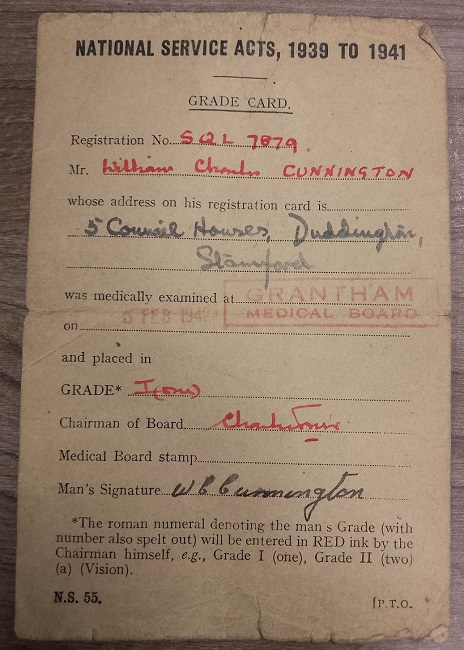 NATIONAL SERVICE ACTS, 1939 TO 1941
GRADE CARD.
Registration No. SQL 7879.
Mr. William Charles CUNNINGTON
whose address on his registration card is
5 Council Houses, Duddington,
Stamford
was medically examined at GRANTHAM
MEDICAL BOARD
on 5 FEB 194
and placed in
GRADE* I (one)
Chairman of Board
Medical Board stamp
Man's Signature W C Cunnington
*The roman numeral denoting the man s Grade (with
number also spelt out) will be entered in RED ink by the
Chairman himself, e.g., Grade I (one), Grade II (two)
(a) (Vision).
N.S. 55.
[P.T.O.